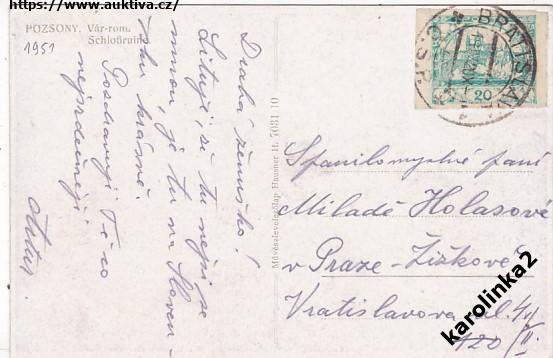 https://www.auktiva.cz/
POZSONY. Vár-rom.
Schloßruine
1951
Drahá ženuško!
Lituji, že tu nejsi se
mnou, je tu na Sloven-
sku krásně.
Pozdravuji Tě co
nejsrdečněji
Művészlevelezőlap Hausner H. 7081 10
BRATISLAVA
Č.S.P.
20
Spanilomyslné paní
Miladě Holasové
v Praze-Žižkově
Vratislavova ul.
karolinka2